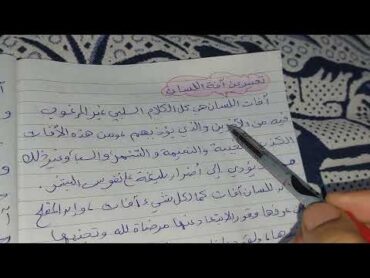 تعبير عن آفة اللسان
آفات اللسان هي كل الكلام السلبي غير المرغوب
فيه من الآخرين والذي يؤذيهم ، ومن هذه الآفات
الكذب والغيبة والنميمة والتنمر والسب وغير ذلك
يؤدي إلى أضرار بليغة على نفوس البشر
اللسان آفات كما لكل شيء آفات ، وإنه المفلح
عرفها وفور الابتعاد عنها مرضاة لله وتجنبها